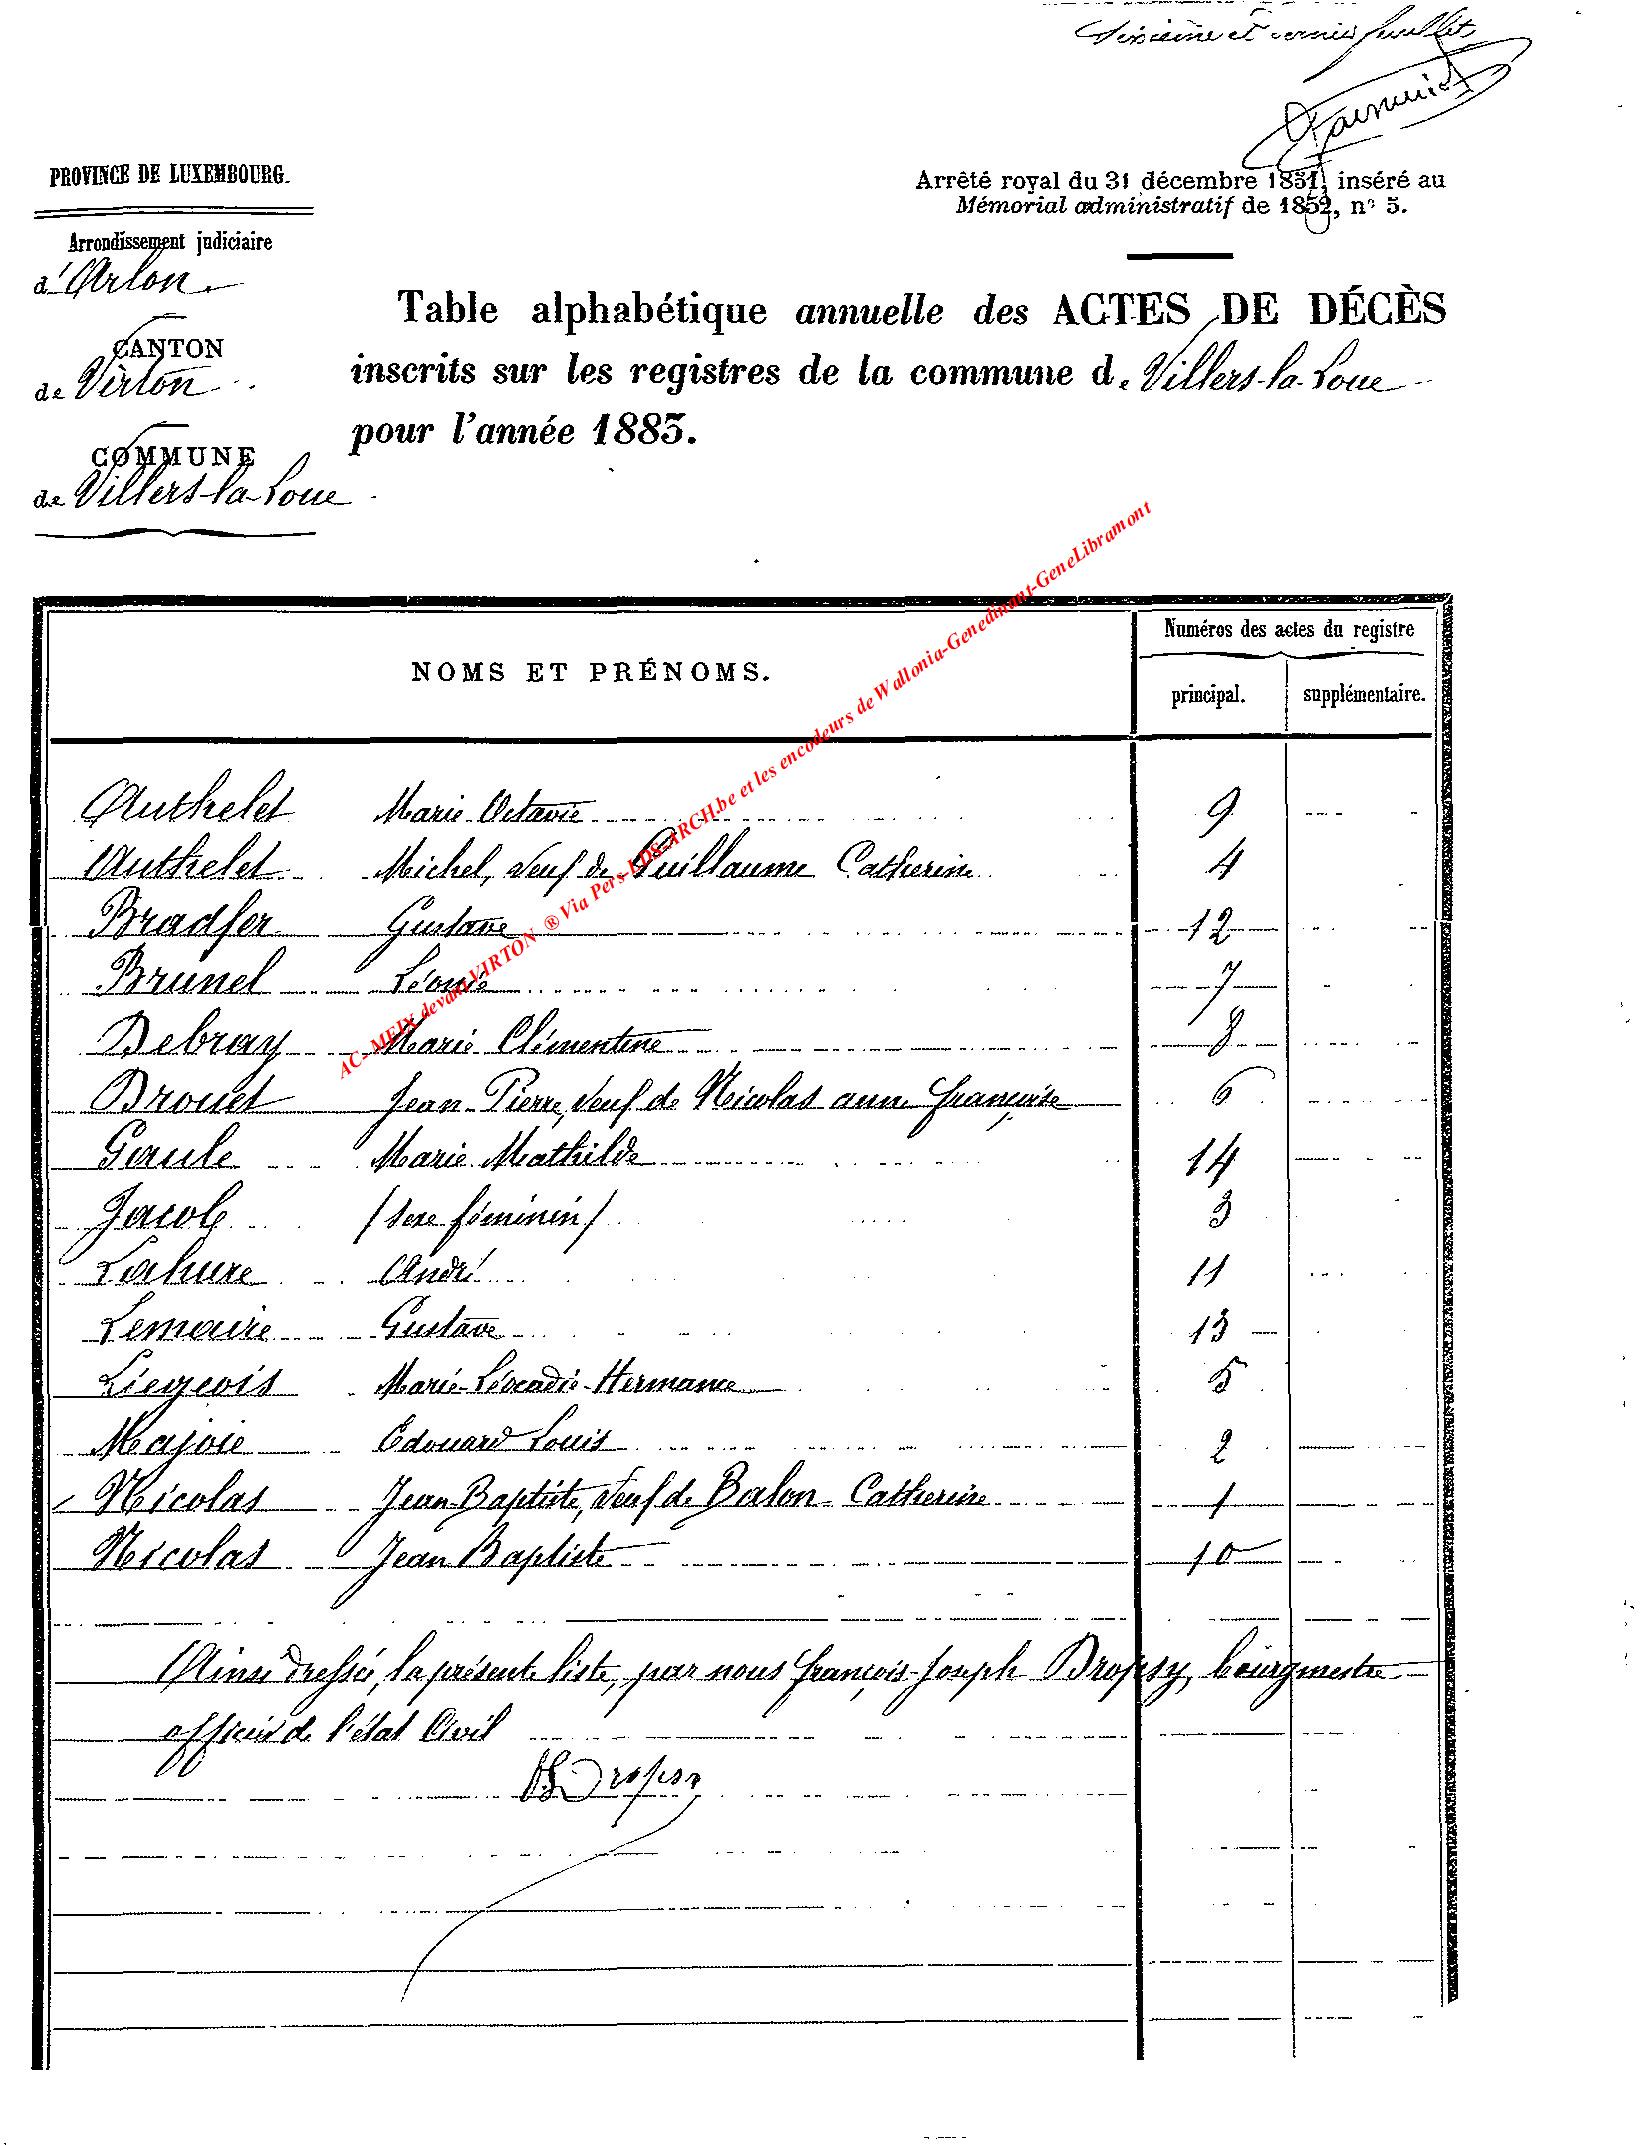 Sixième et dernier feuillet
PROVINCE DE LUXEMBOURG.
Arrondissement judiciaire
d'Arlon
CANTON
de Virton
COMMUNE
de Villers-la-Loue
Arrêté royal du 31 décembre 1851, inséré au
Mémorial administratif de 1852, n° 5.
Table alphabétique annuelle des ACTES DE DÉCÈS
inscrits sur les registres de la commune de Villers-la-Loue
pour l'année 1883.
NOMS ET PRÉNOMS.
Numéros des actes du registre
principal. supplémentaire.
Authelet Marie Octavie 9
Authelet Michel, veuf de Guillaume Catherine 4
Bradfer Gustave 12
Brunel Léonie 7
Debray Marie Clémentine 8
Drouet Jean-Pierre, veuf de Nicolas anne françoise 6
Gaule Marie Mathilde 14
Jacob / sexe féminin / 3
Lahure André 11
Lemaire Gustave 13
Liégeois Marie-Léocadie-Hermance 5
Majoie Edouard Louis 2
Nicolas Jean Baptiste, veuf de Balon Catherine 1
Nicolas Jean Baptiste 10
Ainsi dressée, la présente liste, par nous françois-Joseph Dropsy, bourgmestre
officier de l'état Civil
Dropsy
AC-MEIX devant VIRTON ® Via Pers-LDS-ARCH.be et les encodeurs de Wallonia-Genedinant-GeneLibramont